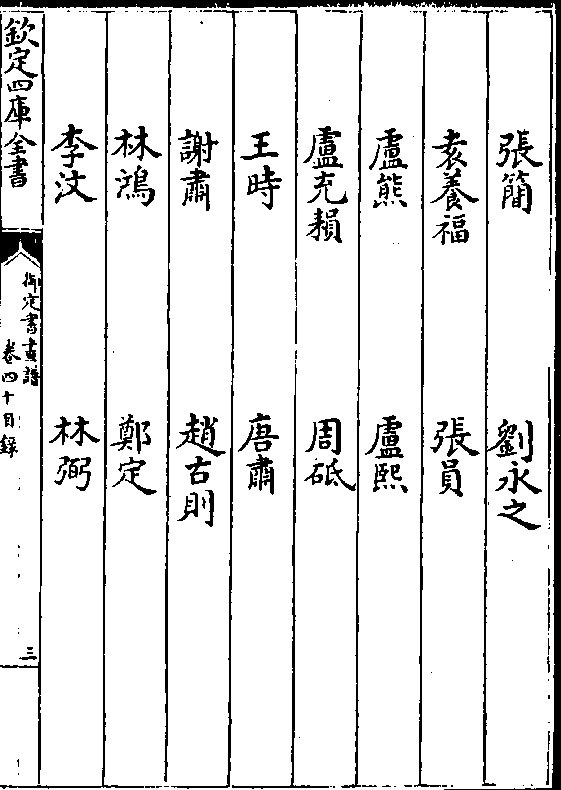 張簡 劉永之
袁養福 張員
盧熊 盧熙
盧充耞 周砥
王時 唐肅
謝肅 趙古則
林鴻 鄭定
李汶 林弼
欽定四庫全書
御定書畫譜
卷四十目録
三